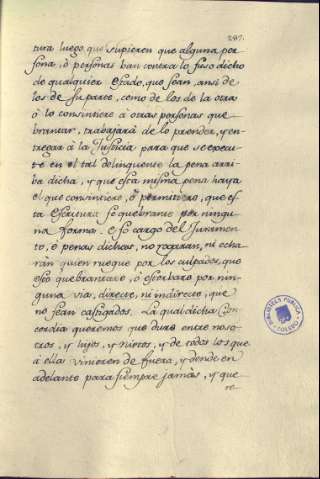 297.
tura luego que supieren que alguna per
sona, ò personas han contra lo suso dicho
de qualquier Estado, que sean, ansi de
los de su parte, como de los de la otra
ò lo consintiere à otras personas que
brantar, trabajarà de lo prender, y en
tregar à la Justicia para que se execu
te en el tal delinquente la pena arri
ba dicha, y que esta misma pena haya
el que consintiere, ò permitiere, que es
ta Escritura se quebrante por ningu
na forma. e sò cargo del Juramen
to, è penas dichas, no rogaran, ni echa
ràn quien ruegue por los culpados, que
esto quebrantare, ò estorbare por nin
guna via, directe, ni indirecte, que
no sean castigados. La qual dicha Con
cordia queremos que dure entre noso
tros, y hijos, y Nietos, y de todos los que
à ella vinieren de fuera, y dende en
adelante para siempre jamàs, y que
re
BIBLIOTECA PUBLICA
TOLEDO